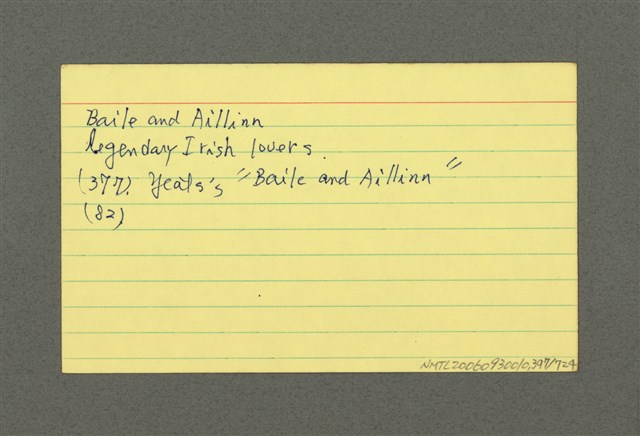 Baile and Aillinn
legendary Irish lovers.
(377). Yeats's "Baile and Aillinn"
(82)
NMTL20060930010,397/724